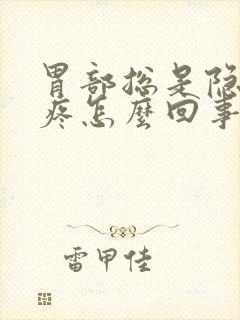 胃部总是隐
疼怎麼回事
雷甲佳